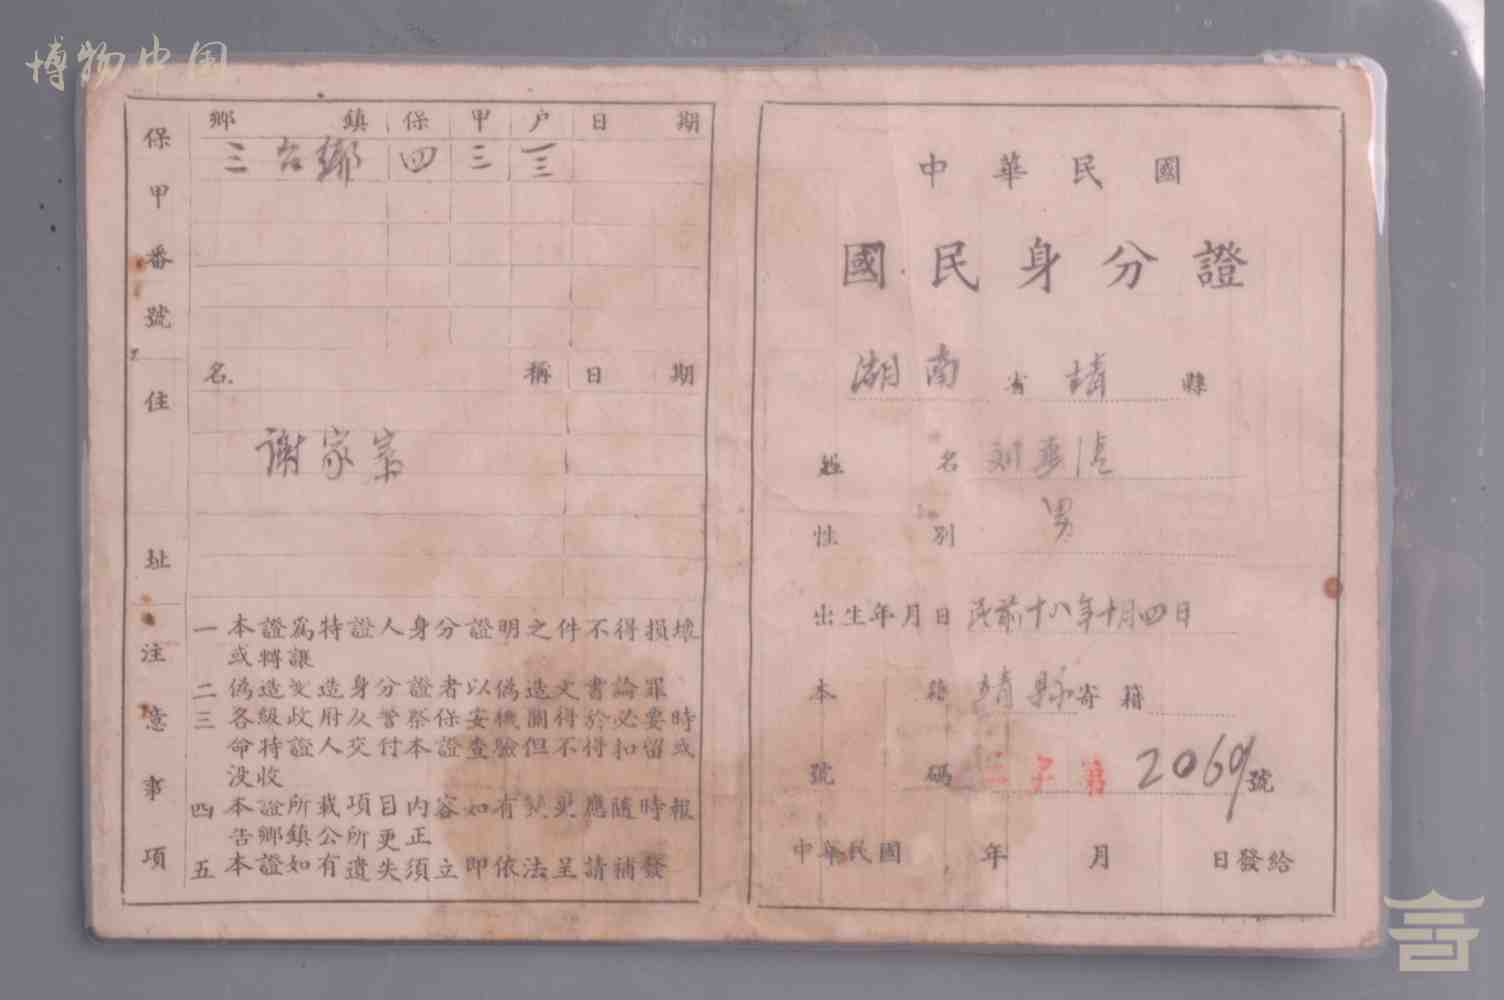 博物中国
中華民國
國民身分證
湖南省靖縣
姓名
性別 男
出生年月日 民前十八年十月四日
本籍 靖縣 寄籍
號碼 三字第2069號
中華民國 年 月 日發給
保甲番號
鄉鎮 保 甲 户 日期
三台鄉 四 三 三
住址
名稱 日期
謝家寨
注意事項
一 本證為特證人身分證明之件不得損壞
或轉讓
二 偽造变造身分證者以偽造文書論罪
三 各級政府及警察保安機關得於必要時
命特證人交付本證查驗但不得扣留或
没收
四 本證所載項目内容如有變更應隨時報
告鄉鎮公所更正
五 本證如有遺失須立即依法呈請補發